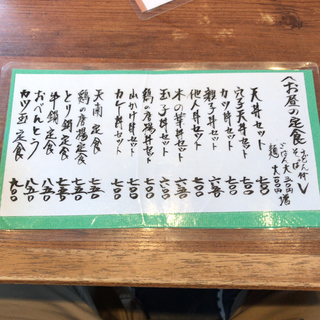 ＜お昼の定食＞
うどん付
そば
ごはん大 五〇円増
麺大 一〇〇円増
天丼セット 七〇〇
穴子天丼セット 七〇〇
カツ丼セット 七〇〇
親子丼セット 六五〇
他人丼セット 七〇〇
木の葉丼セット 六五〇
玉子丼セット 六五〇
鶏の唐揚丼セット 七五〇
山かけ丼セット 七〇〇
カレー丼セット 七〇〇
天南定食 七五〇
鶏の唐揚定食 七五〇
とり鍋定食 七五〇
牛鍋定食 八五〇
おべんとう 八五〇
カツ玉定食 九〇〇